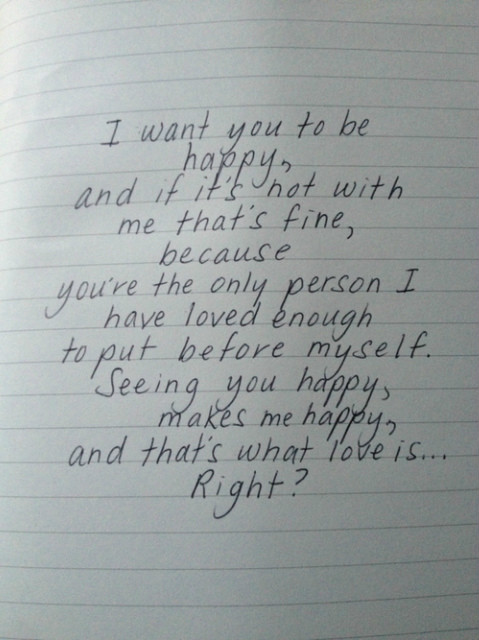 I want you to be
happy,
and if it's not with
me that's fine,
because
you're the only person I
have loved enough
to put before myself.
Seeing you happy,
makes me happy,
and that's what love is...
Right?